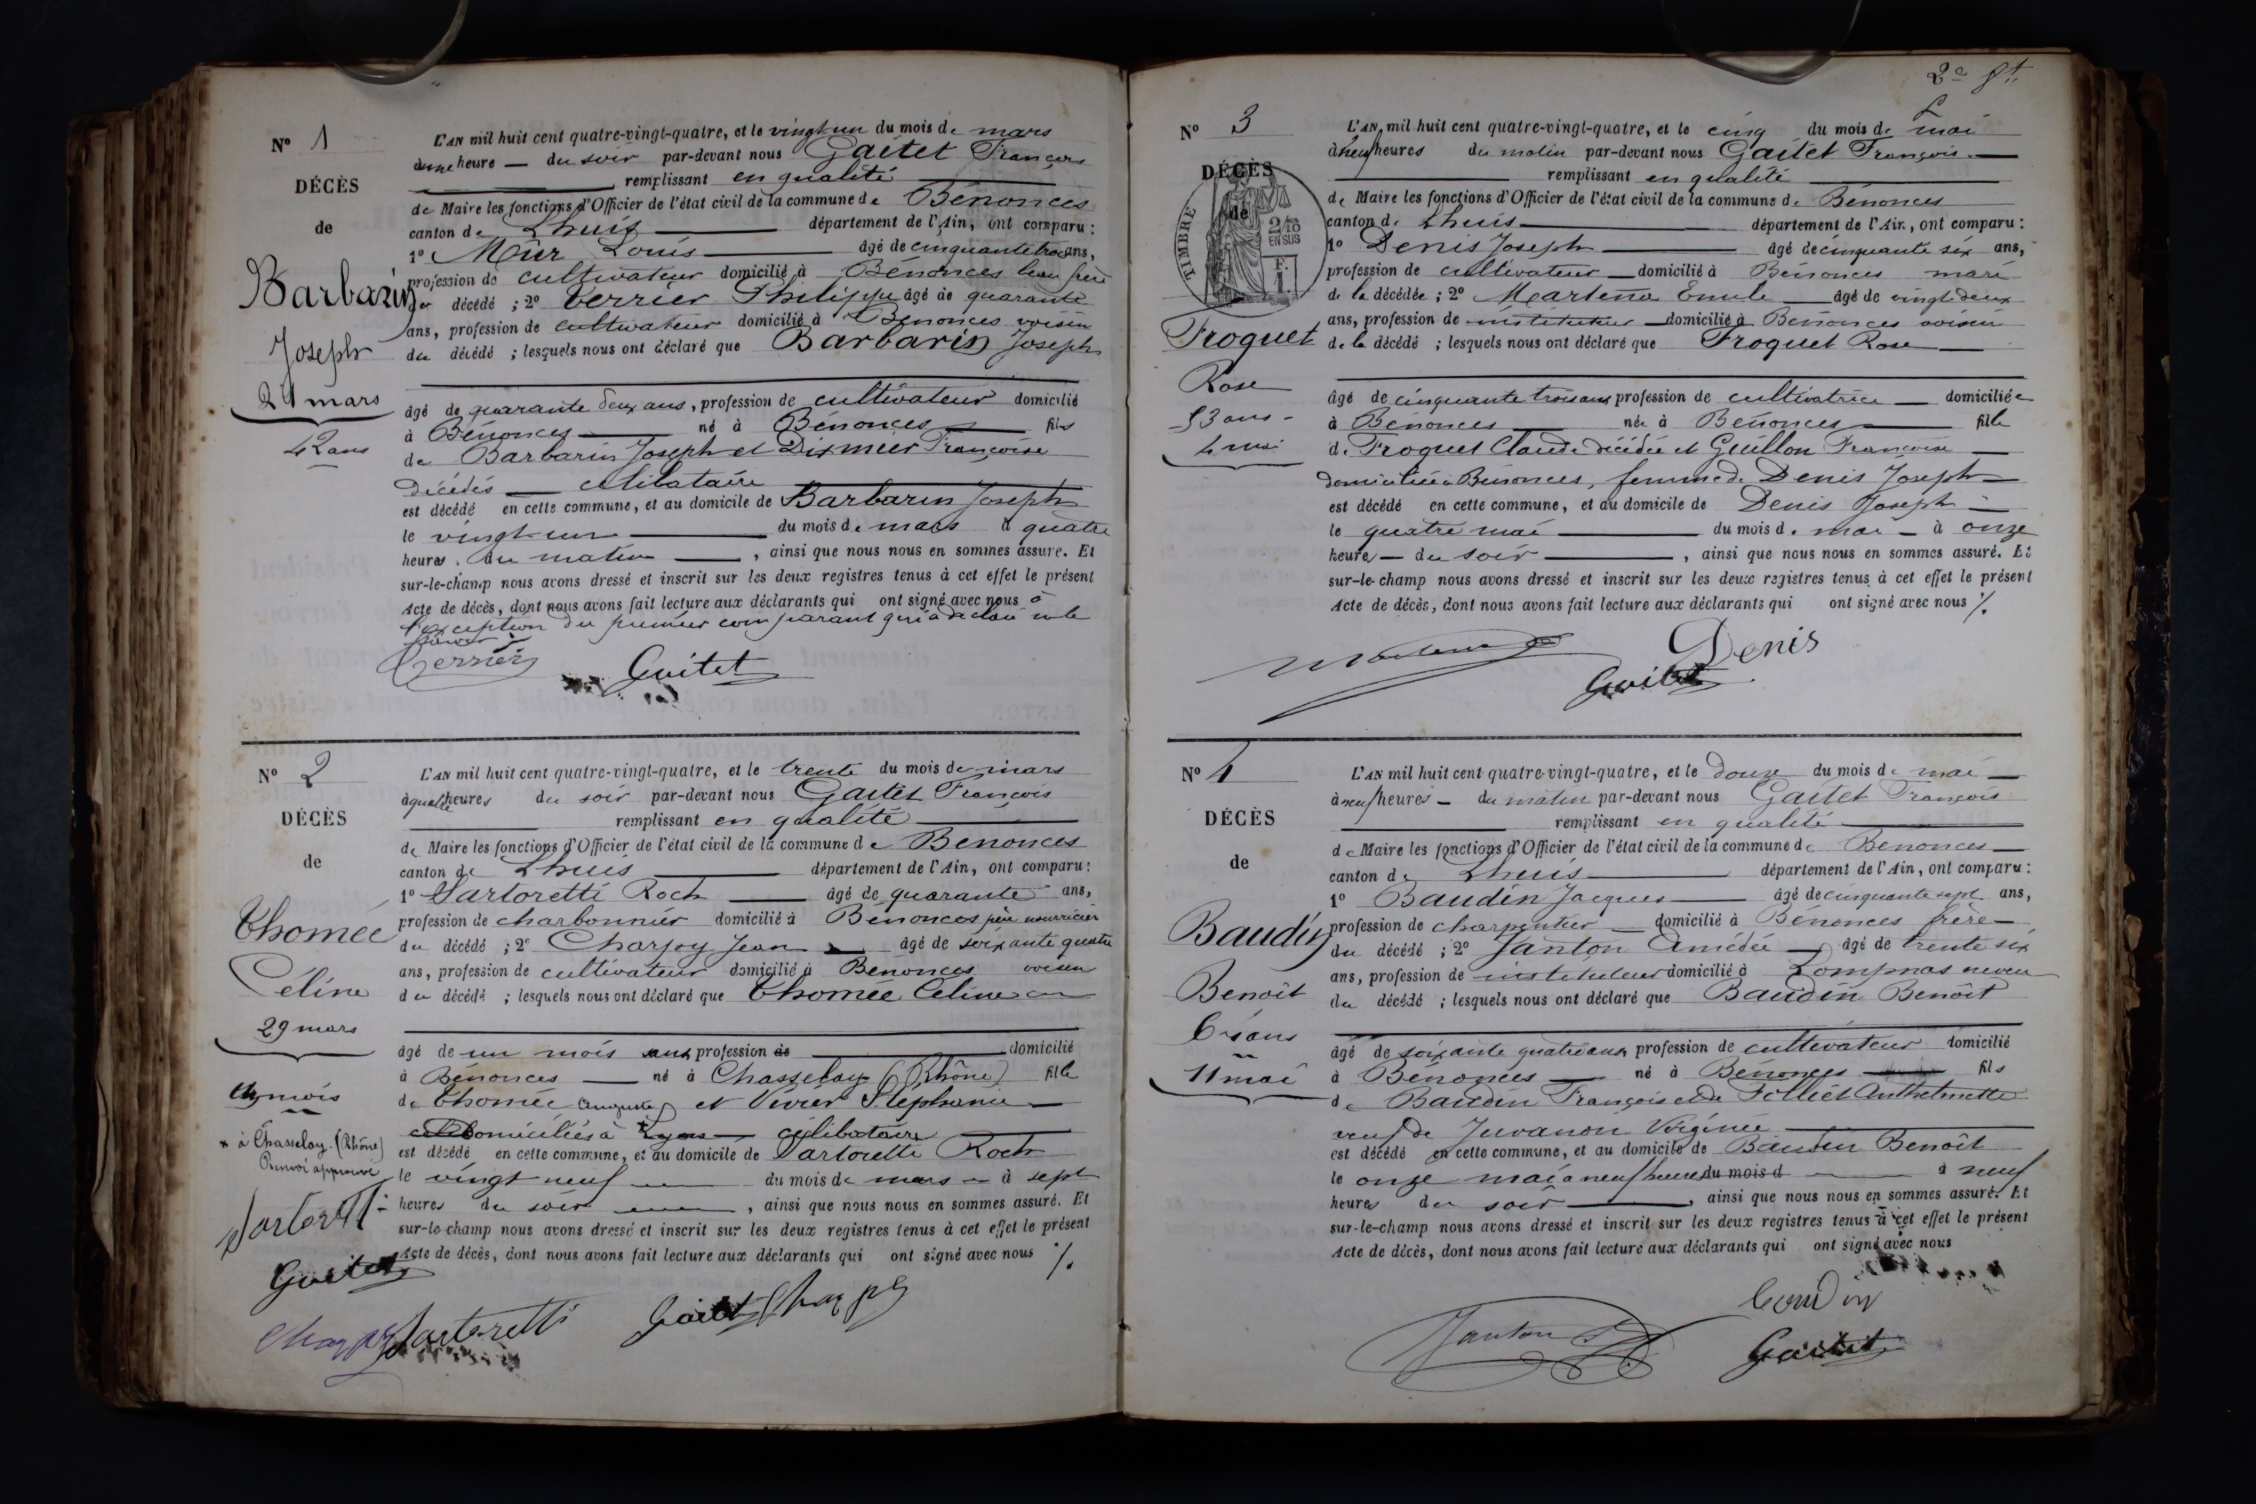 Nº 1
DÉCÈS
de
Barbarin
Joseph
21 mars
42 ans
L'AN mil huit cent quatre-vingt-quatre, et le vingt un du mois de mars
à une heure — du soir par-devant nous Gaitet François
remplissant en qualité
de Maire les fonctions d'Officier de l'état civil de la commune de Bénonces
canton de Lhuis département de l'Ain, ont comparu :
1º Mûr Louis âgé de cinquante trois ans,
profession de cultivateur domicilié à Bénonces beau frère
du décédé ; 2º Verrier Philippe âgé de quarante
ans, profession de cultivateur domicilié à Bénonces voisin
du décédé ; lesquels nous ont déclaré que Barbarin Joseph
âgé de quarante deux ans, profession de cultivateur domicilié
à Bénonces né à Bénonces fils
de Barbarin Joseph et Dixmier Françoise
décédés célibataire
est décédé en cette commune, et au domicile de Barbarin Joseph
le vingt-un du mois de mars à quatre
heures du matin, ainsi que nous nous en sommes assuré. Et
sur-le-champ nous avons dressé et inscrit sur les deux registres tenus à cet effet le présent
Acte de décès, dont nous avons fait lecture aux déclarants qui ont signé avec nous à
l'exception du premier comparant qui a déclaré ne le
savoir
Verrier
Gaitet
Nº 2
DÉCÈS
de
Thomée
Céline
29 mars
un mois
* à Chasselay (Rhône)
Renvoi approuvé
Sartoretti
Gaitet
L'AN mil huit cent quatre-vingt-quatre, et le trente du mois de mars
à quatre heures du soir par-devant nous Gaitet François
remplissant en qualité
de Maire les fonctions d'Officier de l'état civil de la commune de Bénonces
canton de Lhuis département de l'Ain, ont comparu :
1º Sartoretti Roch âgé de quarante ans,
profession de charbonnier domicilié à Bénonces père nourricier
du décédé ; 2º Charjoy Jean âgé de soixante quatre
ans, profession de cultivateur domicilié à Bénonces voisin
du décédé ; lesquels nous ont déclaré que Thomée Céline
âgé de un mois ans, profession de domicilié
à Bénonces né à Chasselay (Rhône) fille
de Thomée Auguste et Vivier Stéphanie
domiciliés à Lyon célibataire
est décédé en cette commune, et au domicile de Sartoretti Roch
le vingt neuf du mois de mars à sept
heures du soir, ainsi que nous nous en sommes assuré. Et
sur-le-champ nous avons dressé et inscrit sur les deux registres tenus à cet effet le présent
Acte de décès, dont nous avons fait lecture aux déclarants qui ont signé avec nous ./.
Sartoretti
Gaitet
2e ft
Nº 3
DÉCÈS
de
TIMBRE
2/10
EN SUS
Froquet
Rose
53 ans
4 mai
L'AN mil huit cent quatre-vingt-quatre, et le cinq du mois de mai
à neuf heures du matin par-devant nous Gaitet François
remplissant en qualité
de Maire les fonctions d'Officier de l'état civil de la commune de Bénonces
canton de Lhuis département de l'Ain, ont comparu :
1º Denis Joseph âgé de cinquante six ans,
profession de cultivateur domicilié à Bénonces mari
de la décédée ; 2º Martena Emile âgé de vingt deux
ans, profession de instituteur domicilié à Bénonces voisin
de la décédé ; lesquels nous ont déclaré que Froquet Rose
âgé de cinquante trois ans, profession de cultivatrice domiciliée
à Bénonces née à Bénonces fille
de Froquet Claude décédée et Guillon Françoise
domiciliée à Bénonces, femme de Denis Joseph
est décédé en cette commune, et au domicile de Denis Joseph
le quatre mai du mois de mai à onze
heures du soir, ainsi que nous nous en sommes assuré. Et
sur-le-champ nous avons dressé et inscrit sur les deux registres tenus à cet effet le présent
Acte de décès, dont nous avons fait lecture aux déclarants qui ont signé avec nous ./.
Denis
Gaitet
Nº 4
DÉCÈS
de
Baudin
Benoît
64 ans
11 mai
L'AN mil huit cent quatre-vingt-quatre, et le douze du mois de mai
à neuf heures du matin par-devant nous Gaitet François
remplissant en qualité
de Maire les fonctions d'Officier de l'état civil de la commune de Bénonces
canton de Lhuis département de l'Ain, ont comparu :
1º Baudin Jacques âgé de cinquante sept ans,
profession de charpentier domicilié à Bénonces frère
du décédé ; 2º Janton Amédée âgé de trente six
ans, profession de instituteur domicilié à Lompnas neveu
du décédé ; lesquels nous ont déclaré que Baudin Benoît
âgé de soixante quatre ans, profession de cultivateur domicilié
à Bénonces né à Bénonces fils
de Baudin François et de Folliet Anthelmette
veuf de Juvanon Virginie
est décédé en cette commune, et au domicile de Baudin Benoît
le onze mai à neuf heures du mois d à neuf
heures du soir, ainsi que nous nous en sommes assuré. Et
sur-le-champ nous avons dressé et inscrit sur les deux registres tenus à cet effet le présent
Acte de décès, dont nous avons fait lecture aux déclarants qui ont signé avec nous
Baudin
Janton
Gaitet